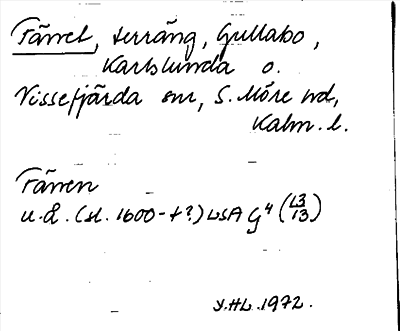 Färret, terräng, Gullabo,
Karlslunda o.
Vissefjärda snr, S. Möre hd,
Kalm. l.
Färren
u.å. (sl. 1600-t?) LSA G4 (13/13)
Y.HL.1972.